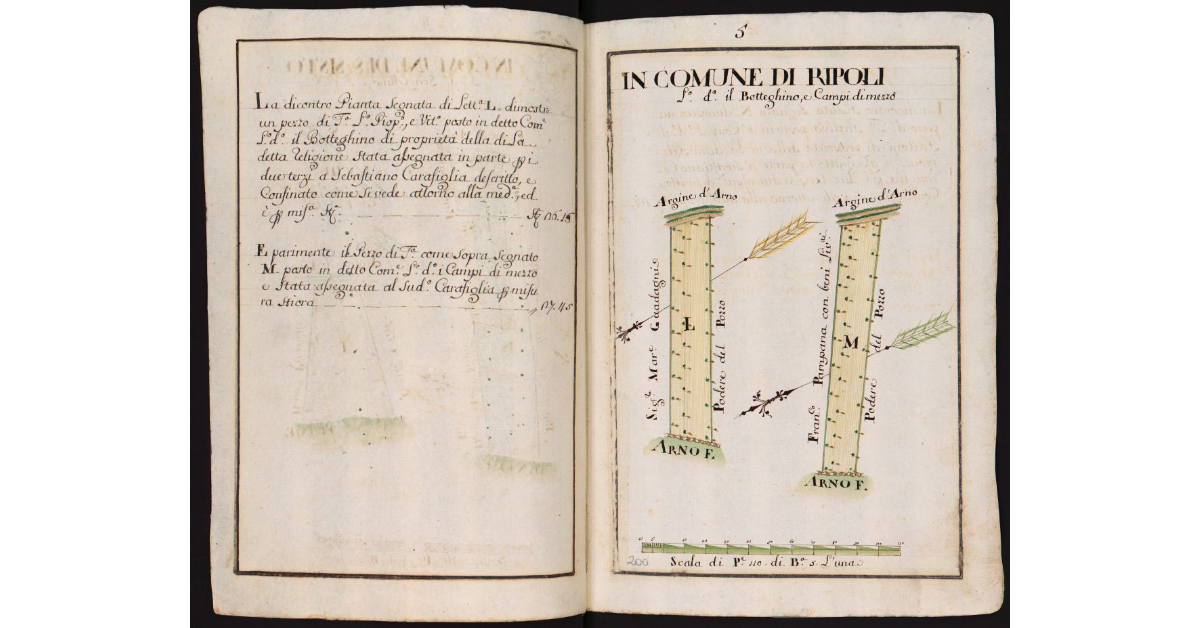 La dicontro Pianta Segnata di Lett.ª L. dimostra
un pezzo di T.ª L.ª Piop.ª, e Vit.ª posto in detto Com.e
L.º d.º il Botteghino di proprietà della di La
detta Religione Stata assegnata in parte p i
due terzi a Sebastiano Carafiglia descritto, e
Confinato come Si vede attorno alla med.ª, ed
è p mis.ª
E parimente il Pezzo di T.ª come Sopra Segnato
M posto in detto Com.e L.º d.º i Campi di mezzo
e Stata assegnata al Sud.º Carafiglia p misu
ra Stiora
5
IN COMUNE DI RIPOLI
L.º d.º il Botteghino, e Campi di mezzo
Argine d'Arno
Argine d'Arno
Sig.e Mar.e Guadagni
L
Podere del Pozzo
Fran.º Pampana con beni Liv.i
M
Podere del Pozzo
ARNO F.
ARNO F.
200
Scala di P.e 110. di B.ª 5. L'una